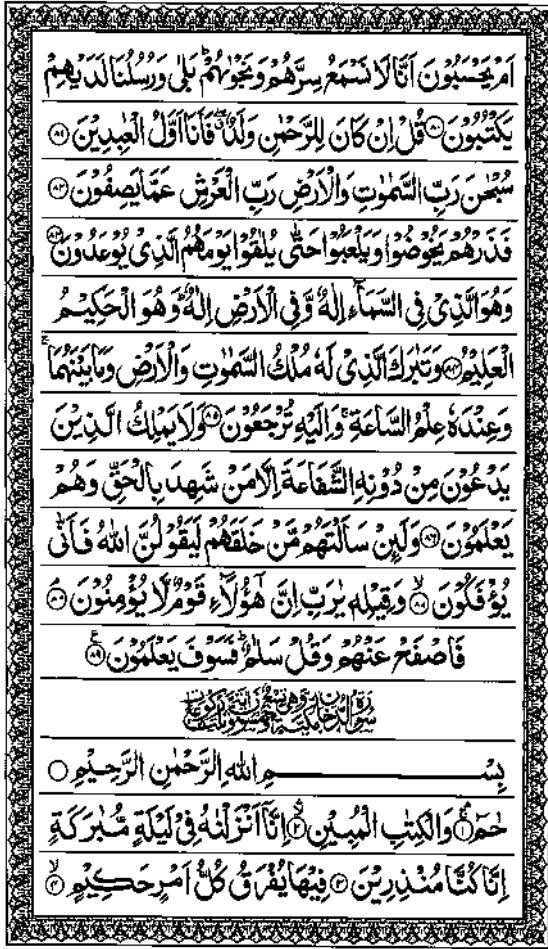 اَمۡ يَحۡسَبُوۡنَ اَنَّا لَا نَسۡمَعُ سِرَّهُمۡ وَنَجۡوٰٮهُمۡ‌ؕ بَلٰى وَرُسُلُنَا لَدَيۡهِمۡ
يَكۡتُبُوۡنَ ﴿۸۰﴾ قُلۡ اِنۡ كَانَ لِلرَّحۡمٰنِ وَلَدٌ ۖ فَاَنَا اَوَّلُ الۡعٰبِدِيۡنَ ﴿۸۱﴾
سُبۡحٰنَ رَبِّ السَّمٰوٰتِ وَالۡاَرۡضِ رَبِّ الۡعَرۡشِ عَمَّا يَصِفُوۡنَ ﴿۸۲﴾
فَذَرۡهُمۡ يَخُوۡضُوۡا وَيَلۡعَبُوۡا حَتّٰى يُلٰقُوۡا يَوۡمَهُمُ الَّذِىۡ يُوۡعَدُوۡنَ ﴿۸۳﴾
وَهُوَ الَّذِىۡ فِى السَّمَآءِ اِلٰـهٌ وَّفِى الۡاَرۡضِ اِلٰـهٌ‌ ؕ وَهُوَ الۡحَكِيۡمُ
الۡعَلِيۡمُ ﴿۸۴﴾ وَتَبٰـرَكَ الَّذِىۡ لَهٗ مُلۡكُ السَّمٰوٰتِ وَالۡاَرۡضِ وَمَا بَيۡنَهُمَا‌ ۚ
وَعِنۡدَهٗ عِلۡمُ السَّاعَةِ‌ ۚ وَاِلَيۡهِ تُرۡجَعُوۡنَ ﴿۸۵﴾ وَلَا يَمۡلِكُ الَّذِيۡنَ
يَدۡعُوۡنَ مِنۡ دُوۡنِهِ الشَّفَاعَةَ اِلَّا مَنۡ شَهِدَ بِالۡحَـقِّ وَهُمۡ
يَعۡلَمُوۡنَ ﴿۸۶﴾ وَلَٮِٕنۡ سَاَلۡـتَهُمۡ مَّنۡ خَلَقَهُمۡ لَيَقُوۡلُنَّ اللّٰهُ‌ فَاَنّٰى
يُؤۡفَكُوۡنَ ۙ ﴿۸۷﴾ وَقِيۡلِهٖ يٰرَبِّ اِنَّ هٰٓؤُلَاۤءِ قَوۡمٌ لَّا يُؤۡمِنُوۡنَ‌ۘ ﴿۸۸﴾
فَاصۡفَحۡ عَنۡهُمۡ وَقُلۡ سَلٰمٌ‌ؕ فَسَوۡفَ يَعۡلَمُوۡنَ ﴿۸۹﴾
سورة الدخان مكية وهي
بِسۡمِ اللّٰهِ الرَّحۡمٰنِ الرَّحِيۡمِ ○
حٰمٓ ﴿۱﴾ وَالۡكِتٰبِ الۡمُبِيۡنِ ﴿۲﴾ اِنَّاۤ اَنۡزَلۡنٰهُ فِىۡ لَيۡلَةٍ مُّبٰـرَكَةٍ
اِنَّا كُنَّا مُنۡذِرِيۡنَ ﴿۳﴾ فِيۡهَا يُفۡرَقُ كُلُّ اَمۡرٍ حَكِيۡمٍ ۙ ﴿۴﴾